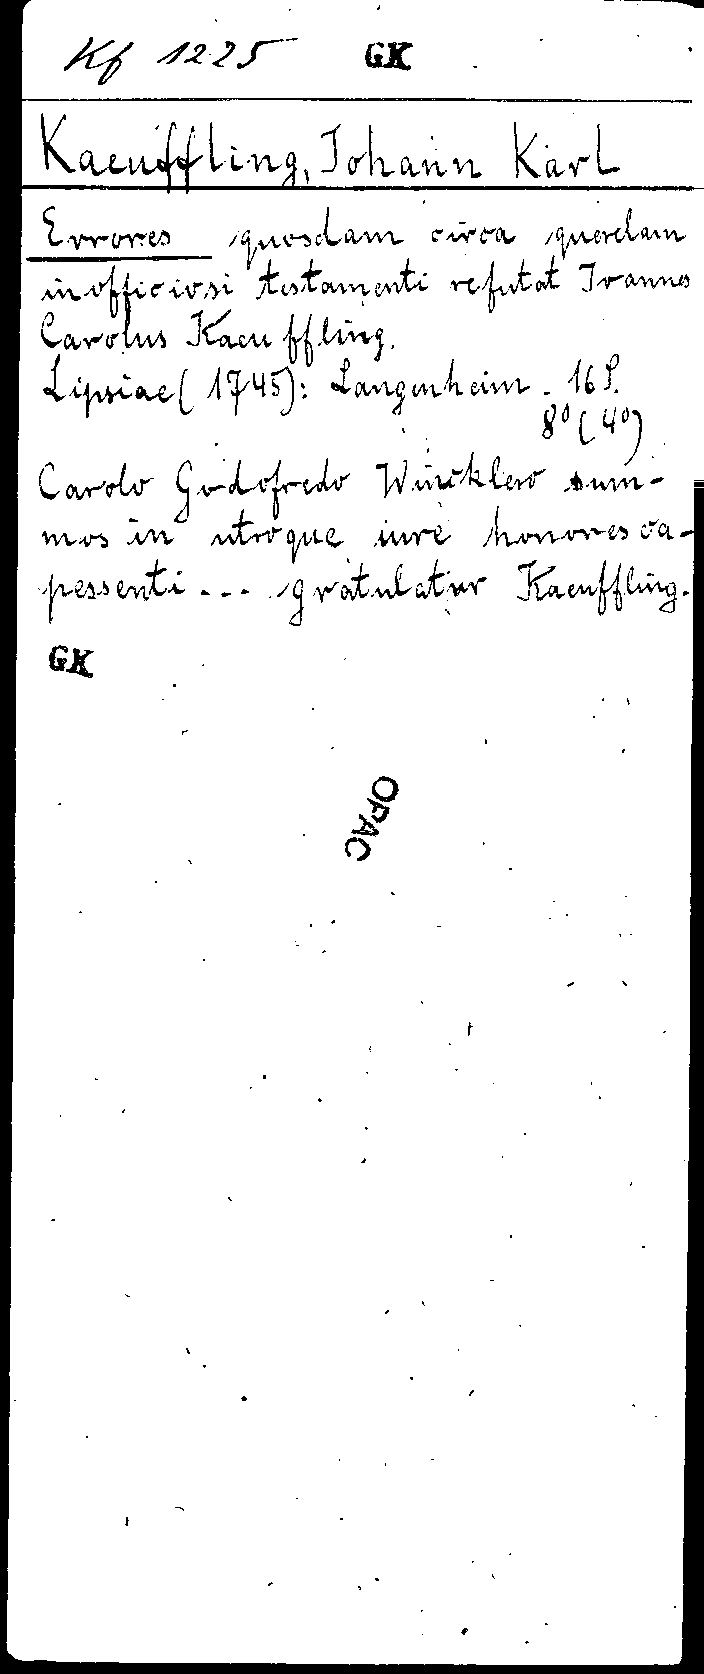 Kf 1225 GK
Kaeuffling, Johann Karl
Errores quosdam circa querelam
inofficiosi testamenti refutat Ioannes
Carolus Kaeuffling.
Lipsiae (1745): Langenheim. 16 S.
8° (4°)
Carolo Godofredo Wincklero sum-
mos in utroque iure honores ca-
pessenti... gratulatur Kaeuffling.
GK
OPAC